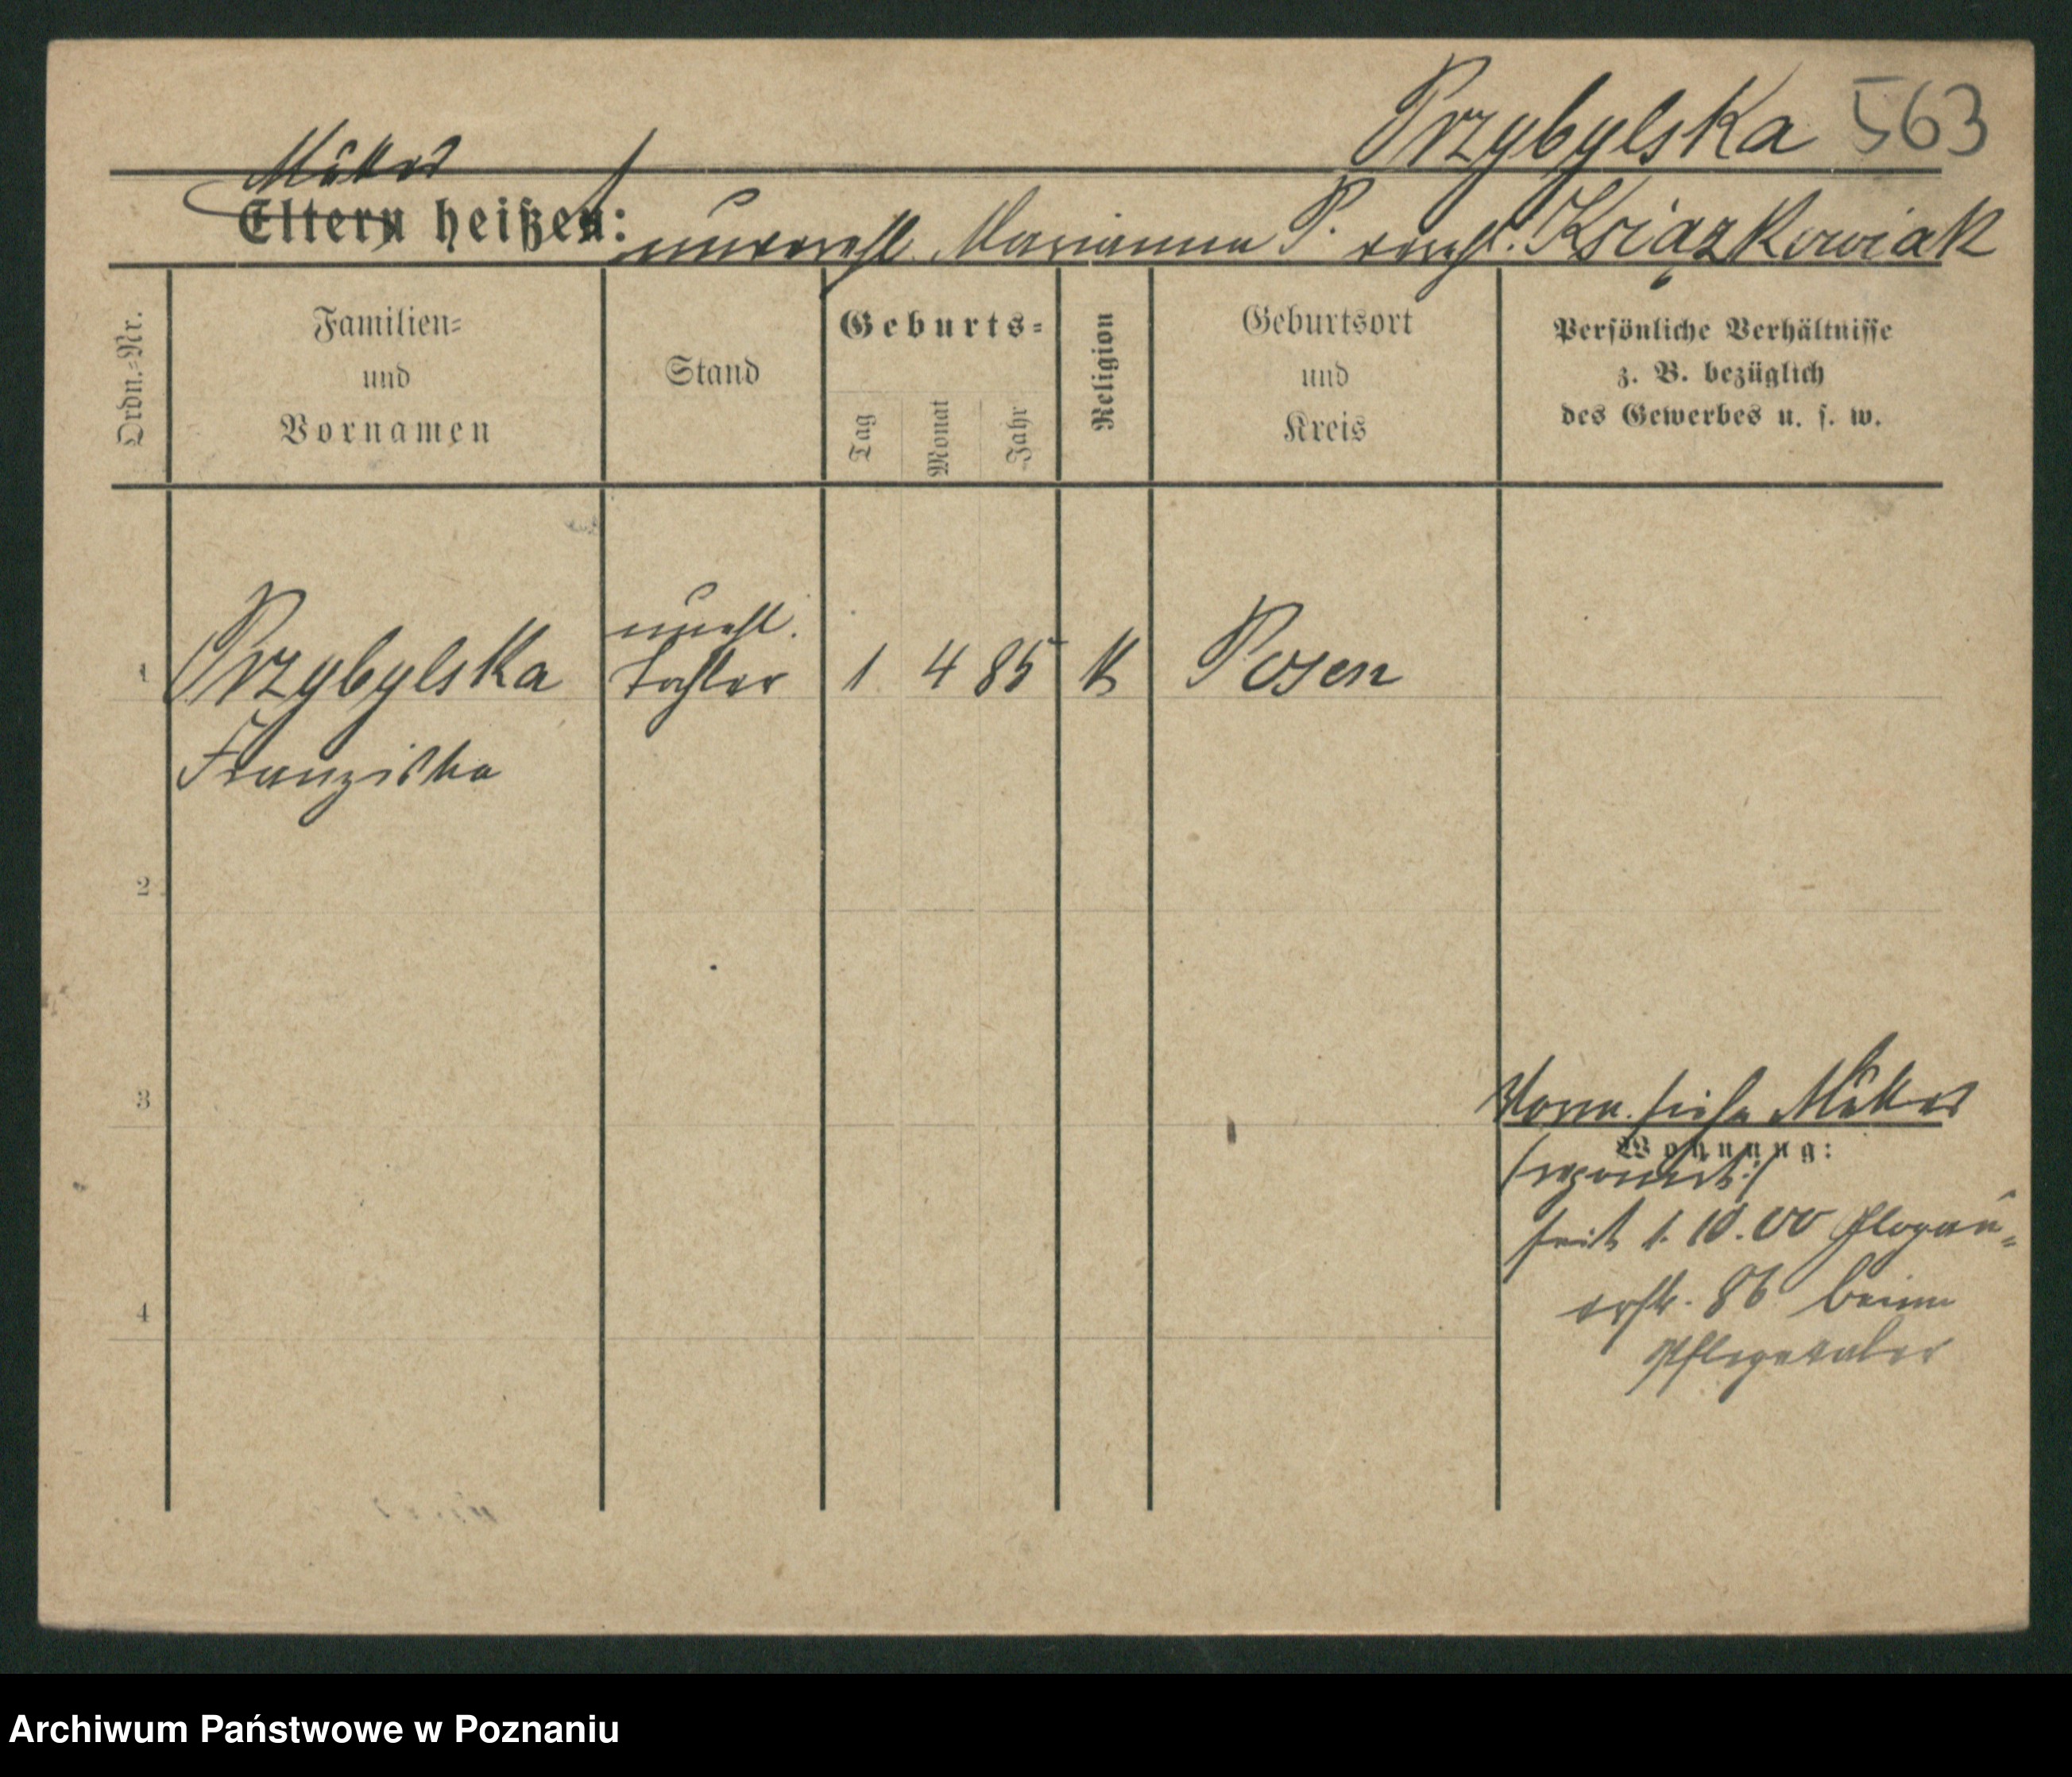 Przybylska 563
Mutter
Eltern heißen: unverehl. Marianna P. verehl. Książkowiak
Ordn.=Nr.
Familien=
und
Vornamen
Stand
Geburts=
Tag
Monat
Jahr
Religion
Geburtsort
und
Kreis
Persönliche Verhältnisse
z. B. bezüglich
des Gewerbes u. s. w.
1 Przybylska
Franziska
unehl.
Tochter
1 4 85 K Posen
2
3
4
siehe Mutter
Wohnung:
seit 1. 10. 00 Glogau=
erstr. 86 beim
Pflegevater
Archiwum Państwowe w Poznaniu